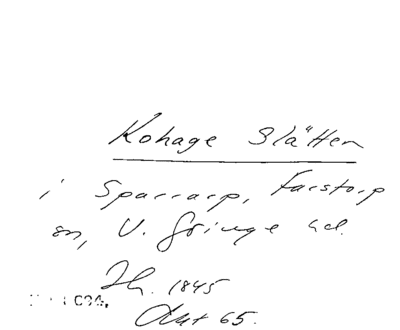 Kohage Slätten
i Sparrarp, Farstorp
sn, V. Göinge hd.
1845
Akt 65.